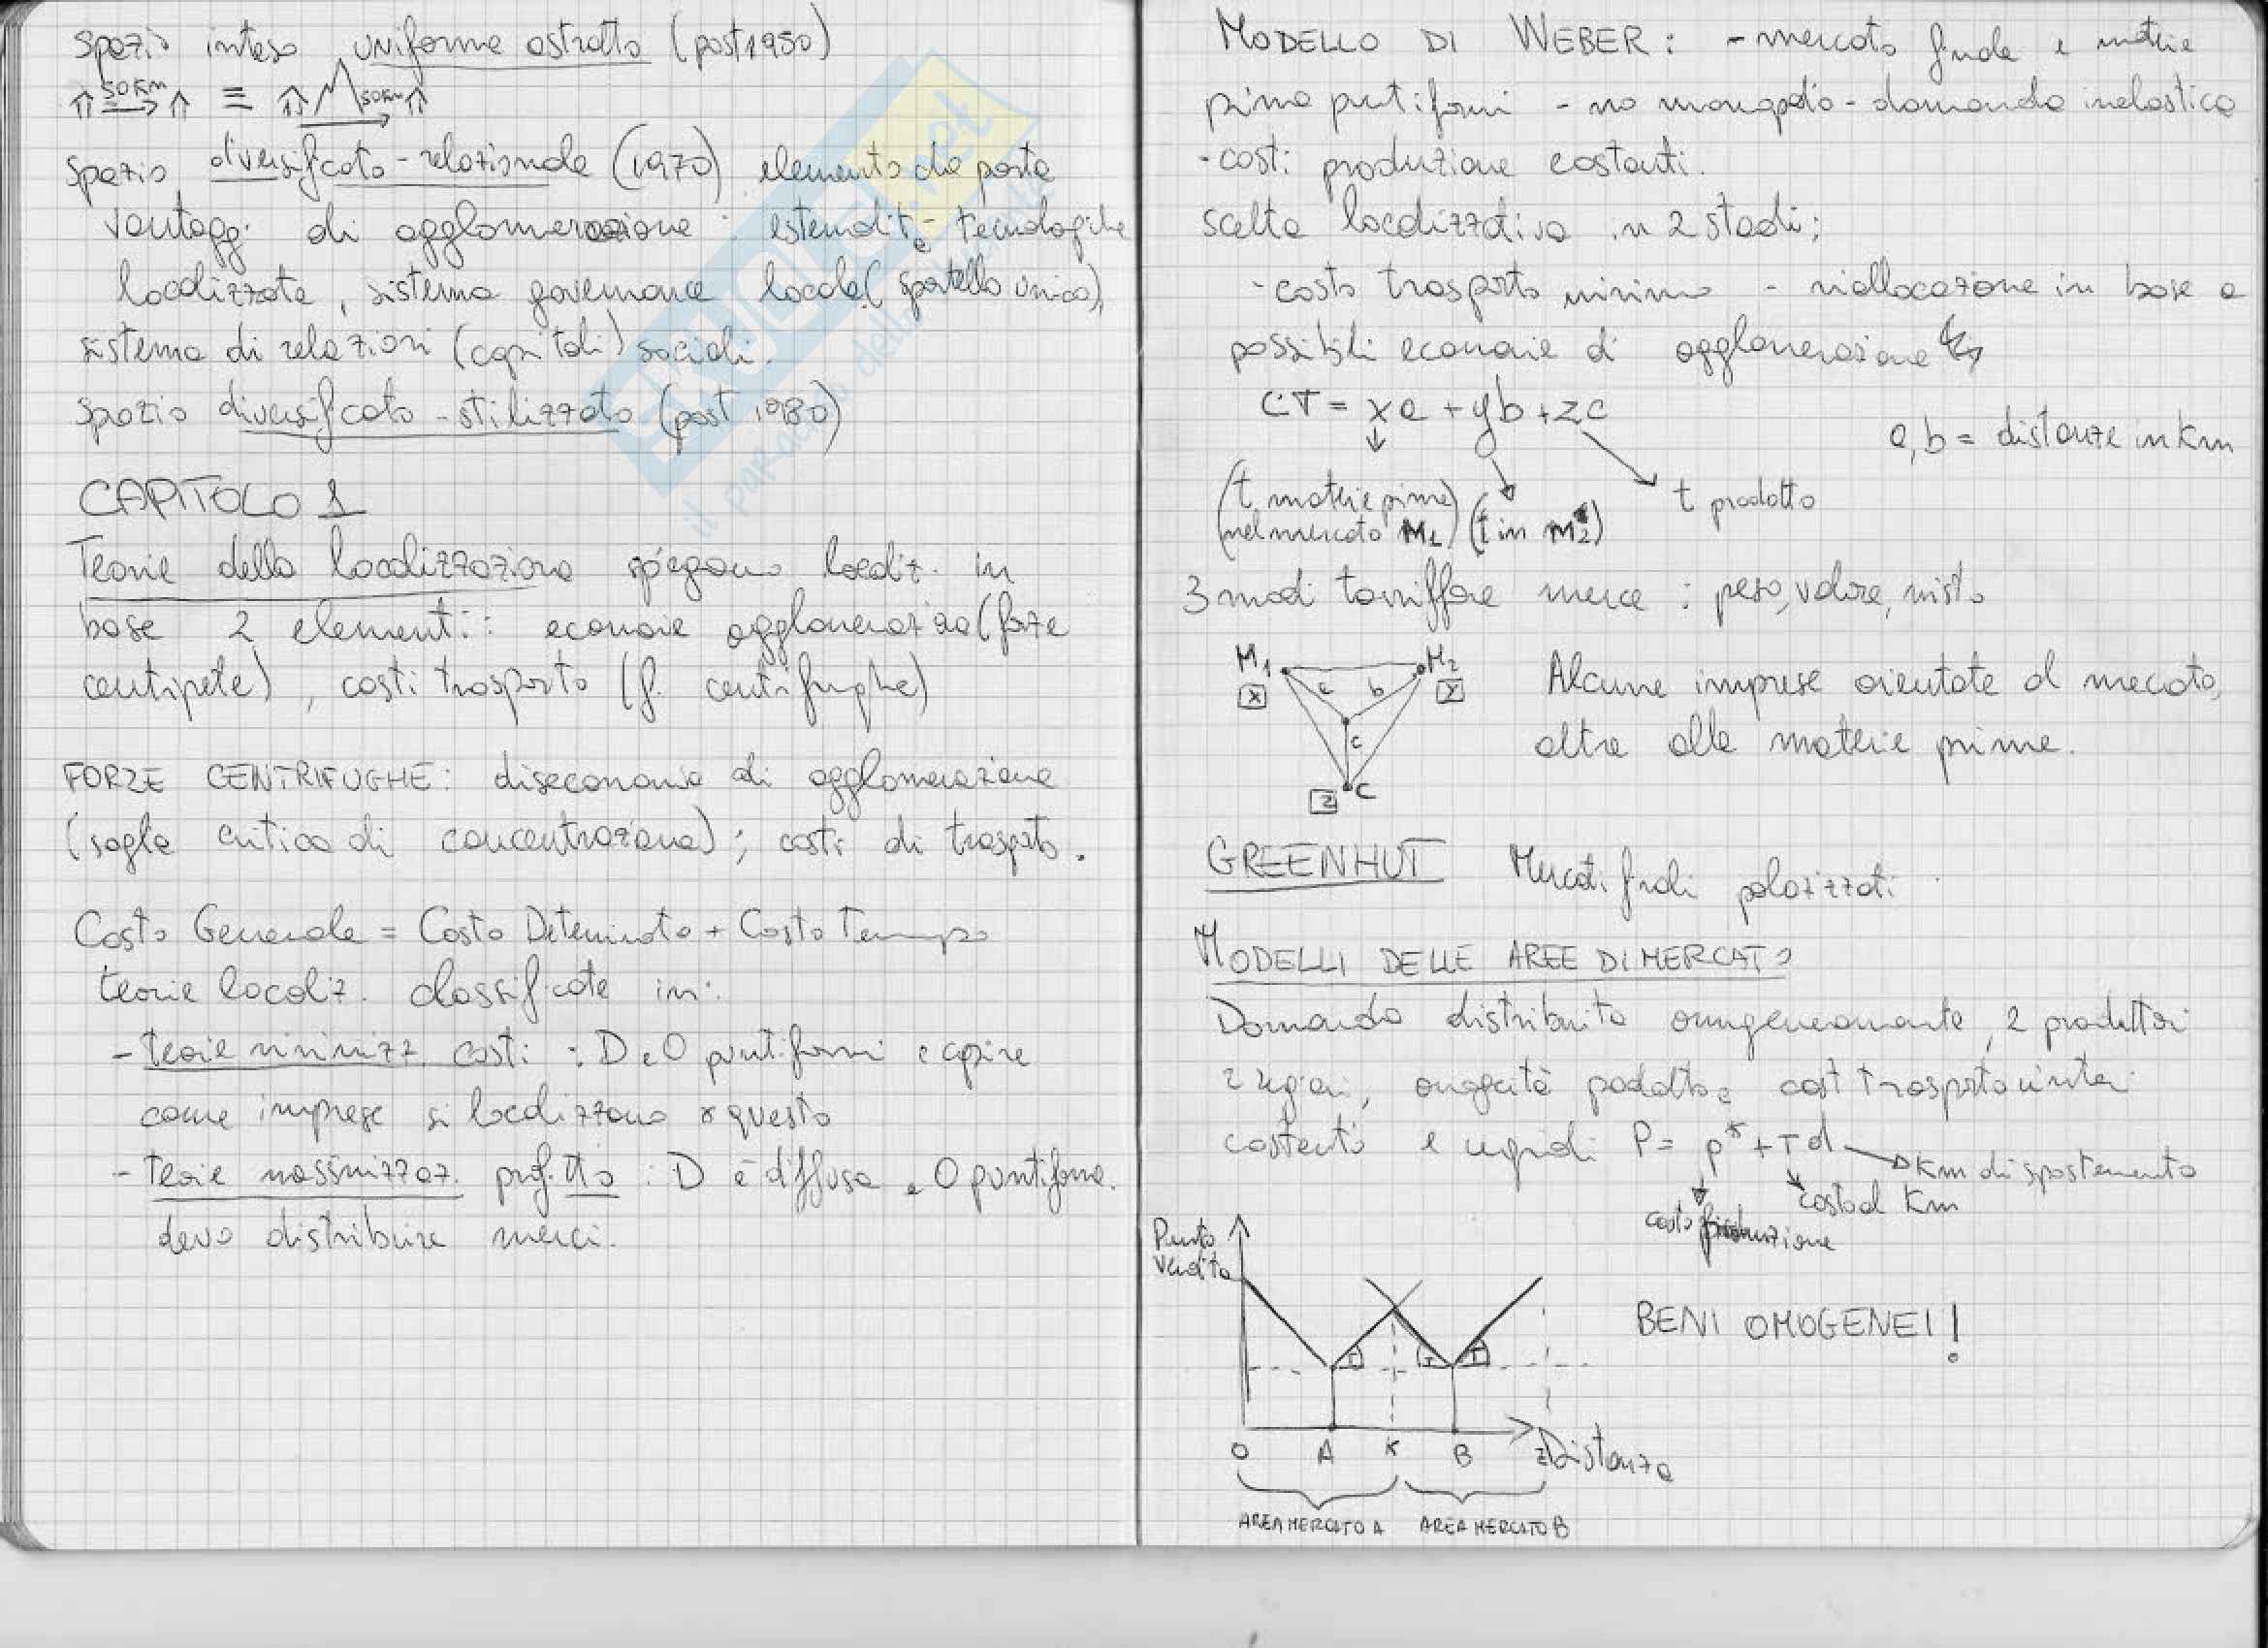 Spazio inteso uniforme astratto (post 1950)
50 Km ≡ 50 Km
Spazio diversificato-relazionale (1970) elemento che porta
vantaggi di agglomerazione: esternalità tecnologiche
localizzate, sistema governance locale (sportello unico),
sistema di relazioni (capitali) sociali.
Spazio diversificato-stilizzato (post 1980)
CAPITOLO 1
Teorie della localizzazione spiegano localiz. in
base 2 elementi: economie agglomerazione (forze
centripete), costi trasporto (f. centrifughe)
FORZE CENTRIFUGHE: diseconomie di agglomerazione
(soglia critica di concentrazione); costi di trasporto.
Costo Generale = Costo Determinato + Costo Tempo
teorie localiz. classificate in:
- teorie minimizz. costi: D e O puntiformi e capire
come imprese si localizzano x questo
- Teorie massimizzaz. profitto: D è diffusa e O puntiforme.
devo distribuire merci.
MODELLO DI WEBER: - mercato finale e materie
prime puntiformi - no monopolio - domanda inelastica
- costi produzione costanti.
scelta localizzativa in 2 stadi:
- costo trasporto minimo - riallocazione in base a
possibili economie di agglomerazione
CT = xa + yb + zc
a, b = distanze in Km
(t materie prime nel mercato M1) (t in M2) t prodotto
3 modi tariffare merce: peso, valore, misto
M1 M2
x a b y
c
z C
Alcune imprese orientate al mercato,
altre alle materie prime.
GREENHUT Mercati finali polarizzati
MODELLI DELLE AREE DI MERCATO
Domanda distribuita omogeneamente, 2 produttori
costanti e P = p* + Td Km di spostamento
costo produzione costo al Km
Punto
Vendita
BENI OMOGENEI!
O A K B Z Distanza
AREA MERCATO A AREA MERCATO B